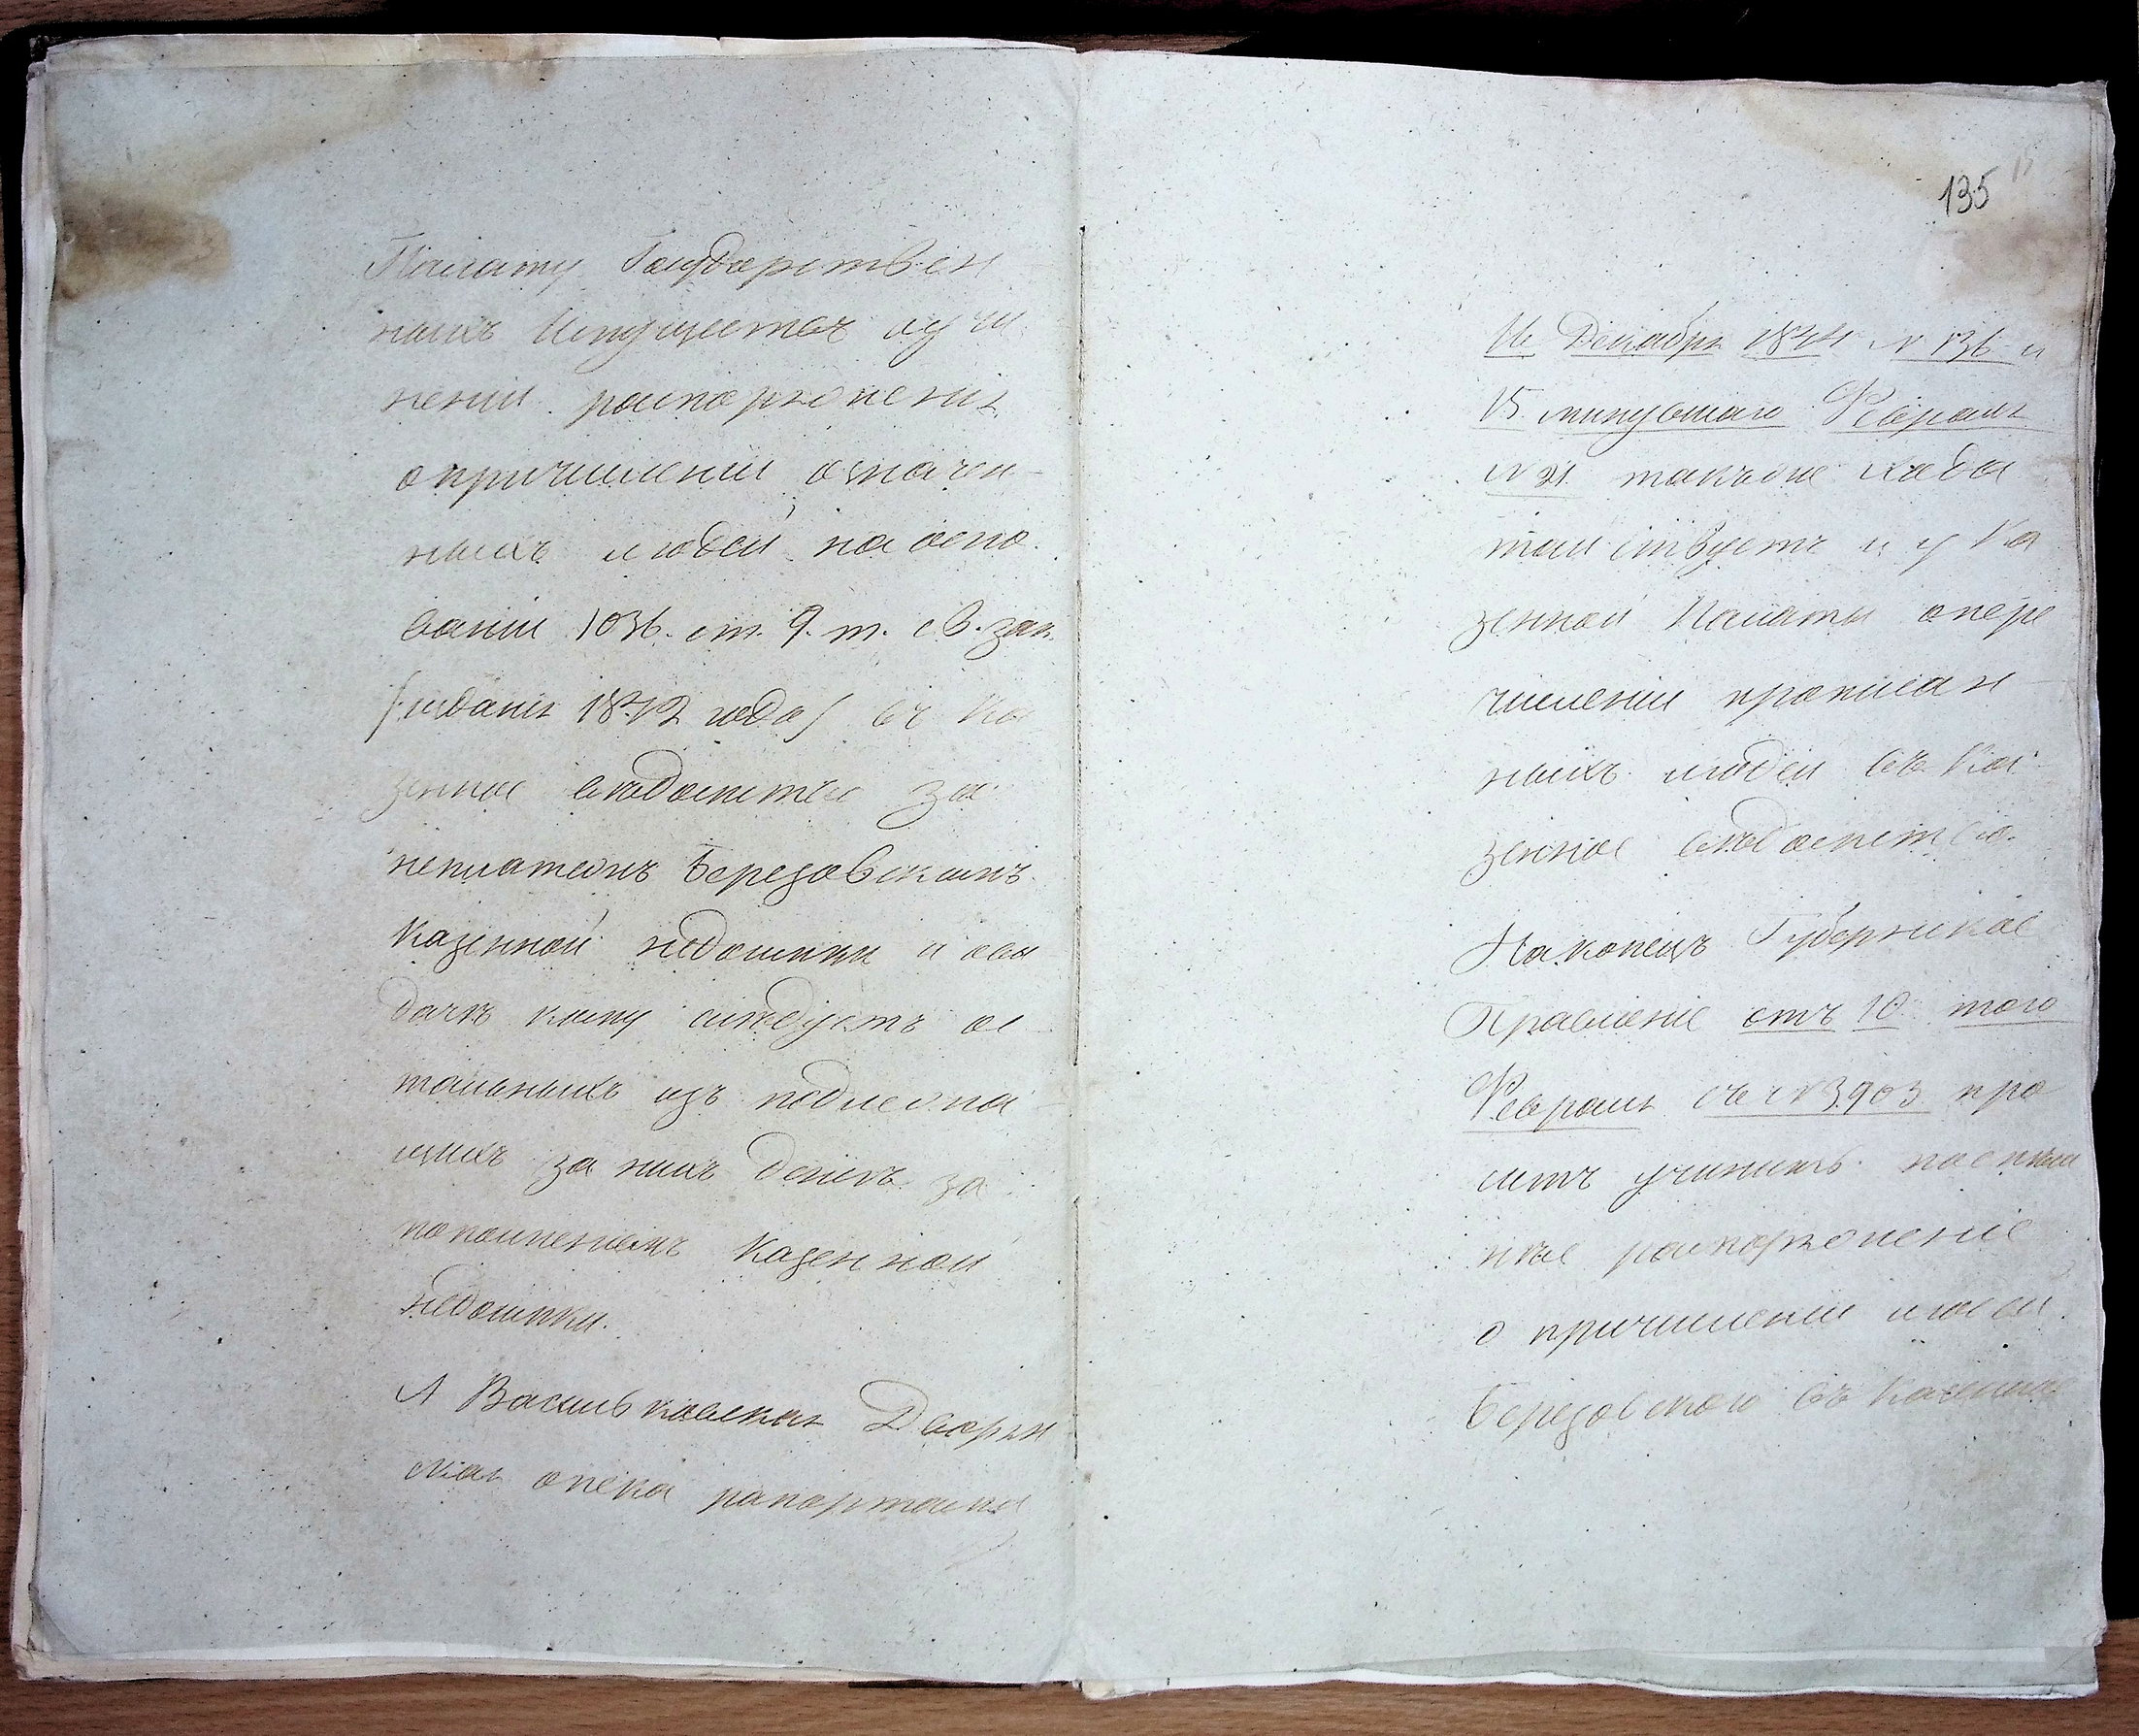 Палату Государствен
ныхъ Имуществъ о учи
неніи распоряженія
о причисленіи означен-
ныхъ людей на осно-
ваніи 1036. ст. 9. т. св. зак.
/: изданія 1842 года / въ Ка
зенное вѣдомство за
неплатежъ Березовскимъ
казенной недоимки и о вы
дачѣ кому слѣдуетъ ос
тальныхъ изъ
за нихъ денегъ за
пополненіемъ казенной
недоимки.
А Васильковская Дворян
ская опека рапортами
135
Декабря 1844 N 136 и
15 минувшаго Февраля
N 21. также хода
тайствуетъ и у Ка
зенной Палаты о пере
численіи прописан-
ныхъ людей въ Ка-
зенное вѣдомство.
Наконецъ Губернское
Правленіе отъ 10 того
Февраля съ N 3903 про
ситъ учинить поспѣш
ное распоряженіе
о причисленіи людей
Березовскаго въ Казенное